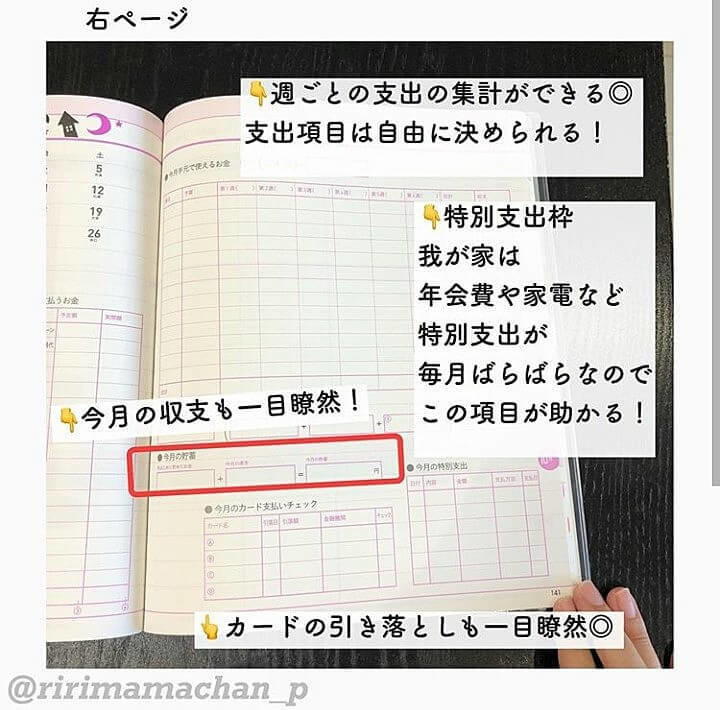 右ページ
👇週ごとの支出の集計ができる◎
支出項目は自由に決められる！
土
5
12
19
26
●今月手元で使えるお金
👇特別支出枠
我が家は
年会費や家電など
特別支出が
毎月ばらばらなので
この項目が助かる！
払うお金
予定額 実際額
👇今月の収支も一目瞭然！
●今月の貯蓄
＋ ＝ 円
●今月の特別支出
日付 内容 金額 支払方法 支払日
●今月のカード支払いチェック
カード名 引落日 引落額 金融機関 チェック
Ⓐ
Ⓑ
Ⓒ
Ⓓ
141
👆カードの引き落としも一目瞭然◎
@ririmamachan_p